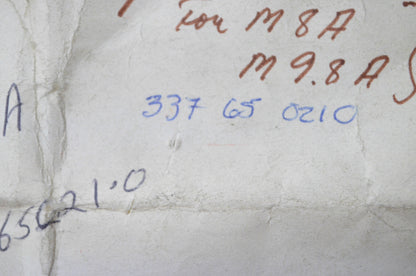 For M8A
M9.8A
A
337 65 0210
65C21.0